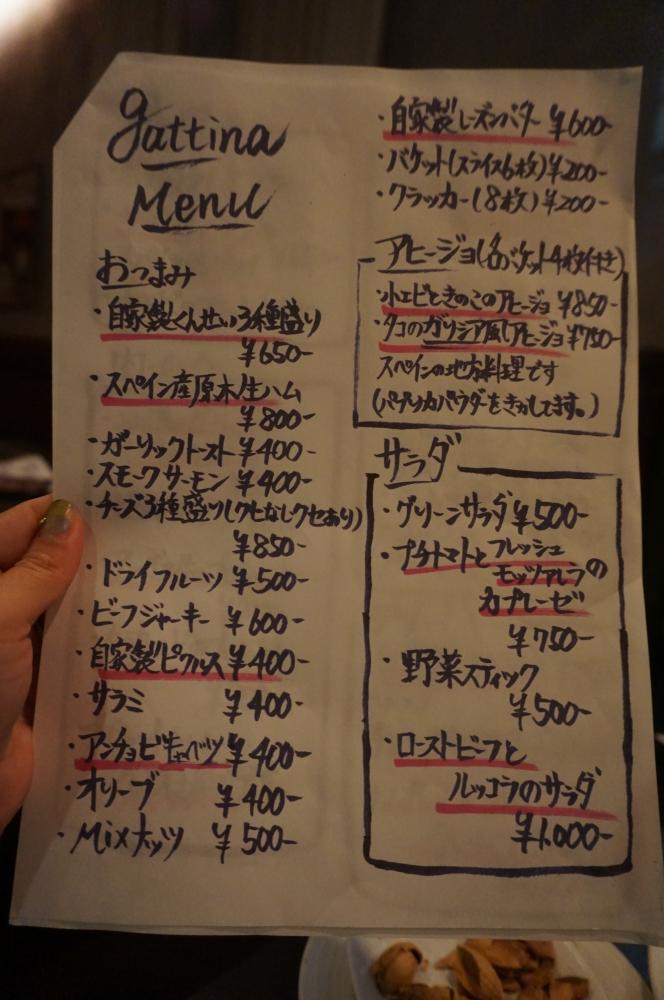 gattina
Menu
おつまみ
・自家製くんせい3種盛り
¥650-
・スペイン産原木生ハム
¥800-
・ガーリックトースト ¥400-
・スモークサーモン ¥400-
・チーズ3種盛り(クセなしクセあり)
¥850-
・ドライフルーツ ¥500-
・ビーフジャーキー ¥600-
・自家製ピクルス ¥400-
・サラミ ¥400-
・アンチョビキャベツ ¥400-
・オリーブ ¥400-
・Mixナッツ ¥500-
・自家製レーズンバター ¥600-
・バケット(スライス6枚) ¥200-
・クラッカー(8枚) ¥200-
アヒージョ(各バケット4枚付き)
・小エビときのこのアヒージョ ¥850-
・タコのガリシア風アヒージョ ¥750-
スペインの地方料理です
(パプリカパウダーをきかしてます。)
サラダ
・グリーンサラダ ¥500-
・プチトマトとフレッシュ
モッツァレラの
カプレーゼ
¥750-
・野菜スティック
¥500-
・ローストビーフと
ルッコラのサラダ
¥1,000-